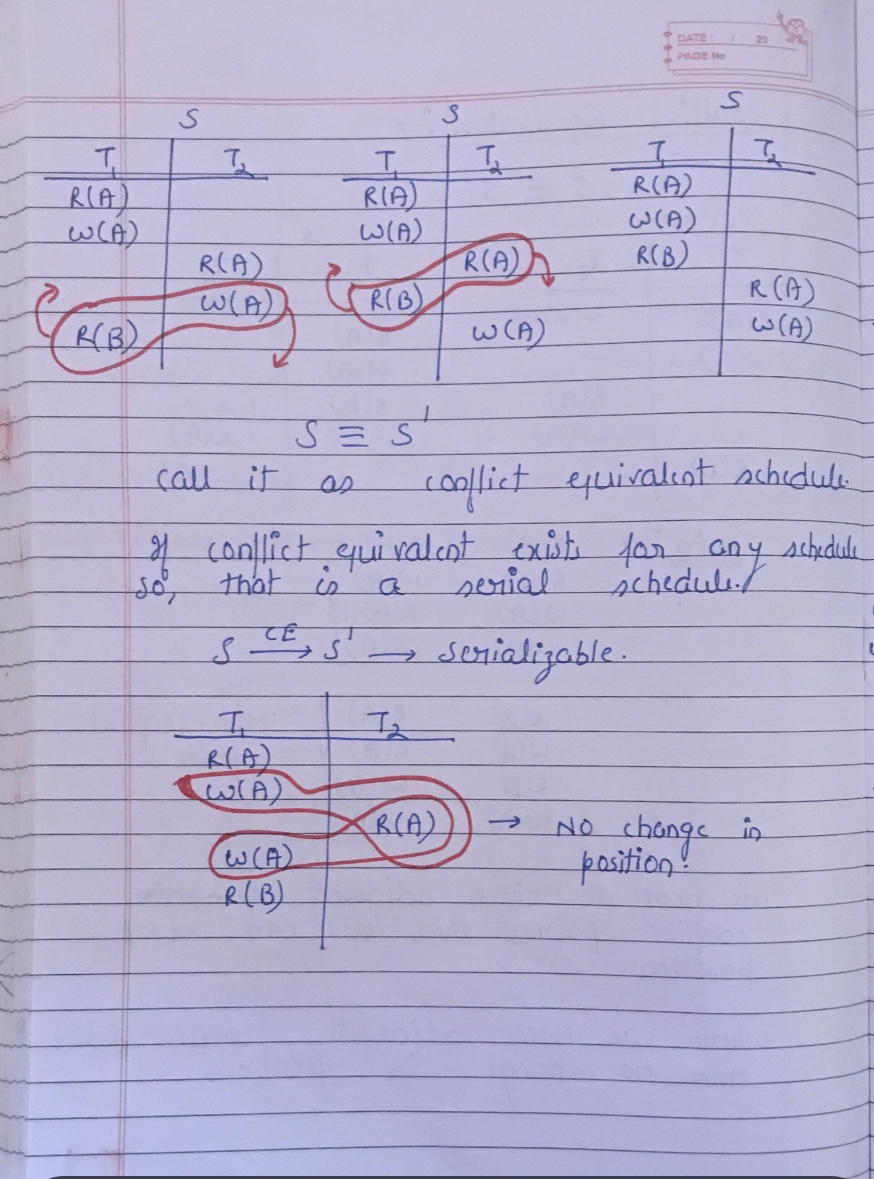 DATE: / 20
PAGE No
S S S
T₁ T₂ T₁ T₂ T₁ T₂
R(A) R(A) R(A)
W(A) W(A) W(A)
R(A) R(A) R(B)
W(A) R(B) R(A)
R(B) W(A) W(A)
S ≡ S'
call it as conflict equivalent schedule.
If conflict equivalent exists for any schedule
so, that is a serial schedule.
S CE→ S' → serializable.
T₁ T₂
R(A)
W(A)
R(A) → No change in
W(A) position!
R(B)